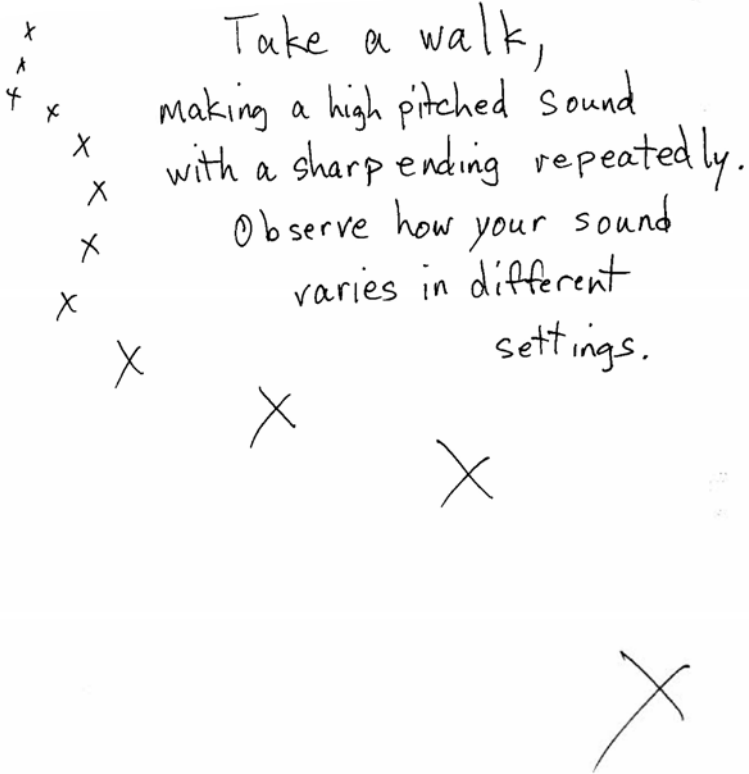 Take a walk,
making a high pitched sound
with a sharp ending repeatedly.
Observe how your sound
varies in different
settings.